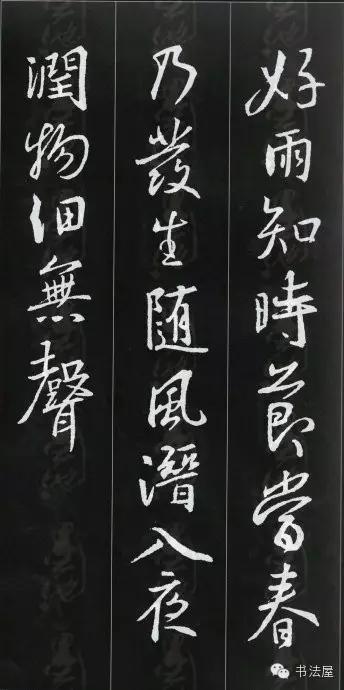 好雨知時節當春
乃發生随風潛入夜
潤物細無聲
书法屋